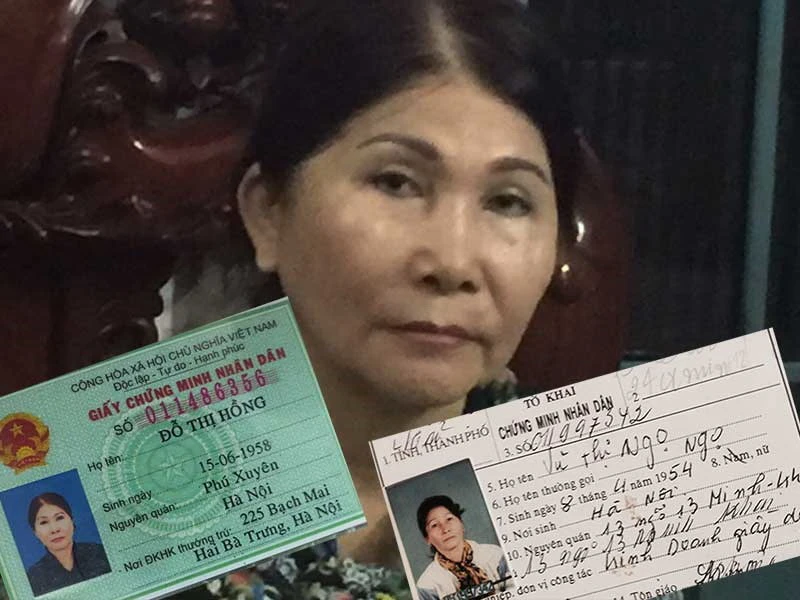 CỘNG HÒA XÃ HỘI CHỦ NGHĨA VIỆT NAM
Độc lập - Tự do - Hạnh phúc
GIẤY CHỨNG MINH NHÂN DÂN
SỐ 011486356
Họ tên: ĐỖ THỊ HỒNG
Sinh ngày 15-06-1958
Nguyên quán: Phú Xuyên
Hà Nội
Nơi ĐKHK thường trú: 225 Bạch Mai
Hai Bà Trưng, Hà Nội
TỜ KHAI
CHỨNG MINH NHÂN DÂN
1. TỈNH, THÀNH PHỐ
3. SỐ 011997342
2
5. Họ tên Vũ Thị Ngọ
6. Họ tên thường gọi Ngọ
7. Sinh ngày 8 tháng 4 năm 1954
8. Nam, nữ
9. Nơi sinh Hà Nội
10. Nguyên quán 13 ngõ 13 Minh
13 Ngõ 13
nghiệp, đơn vị công tác Kinh Doanh giầy
14. Tôn giáo